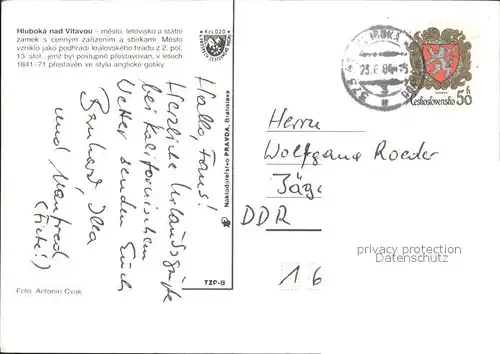 Hluboká nad Vltavou – město, letovisko a státní
zámek s cenným zařízením a sbírkami. Město
vzniklo jako podhradí královského hradu z 2. pol.
13. stol., jenž byl postupně přestavován, v letech
1841–71 přestavěn ve stylu anglické gotiky
Hallo, Fans!
Herzliche Urlaubsgrüße
bei kalifornischem
Wetter senden Euch
Bernhard, Illa
und Manfred
(Fiete!)
Foto: Antonín Cvak
Kčs 0,20
Nakladatelstvo PRAVDA, Bratislava
TZP-9
23.6.86-15
Československo 50 h
Herrn
Wolfgang Roeder
Jäge
DDR
16
privacy protection
Datenschutz